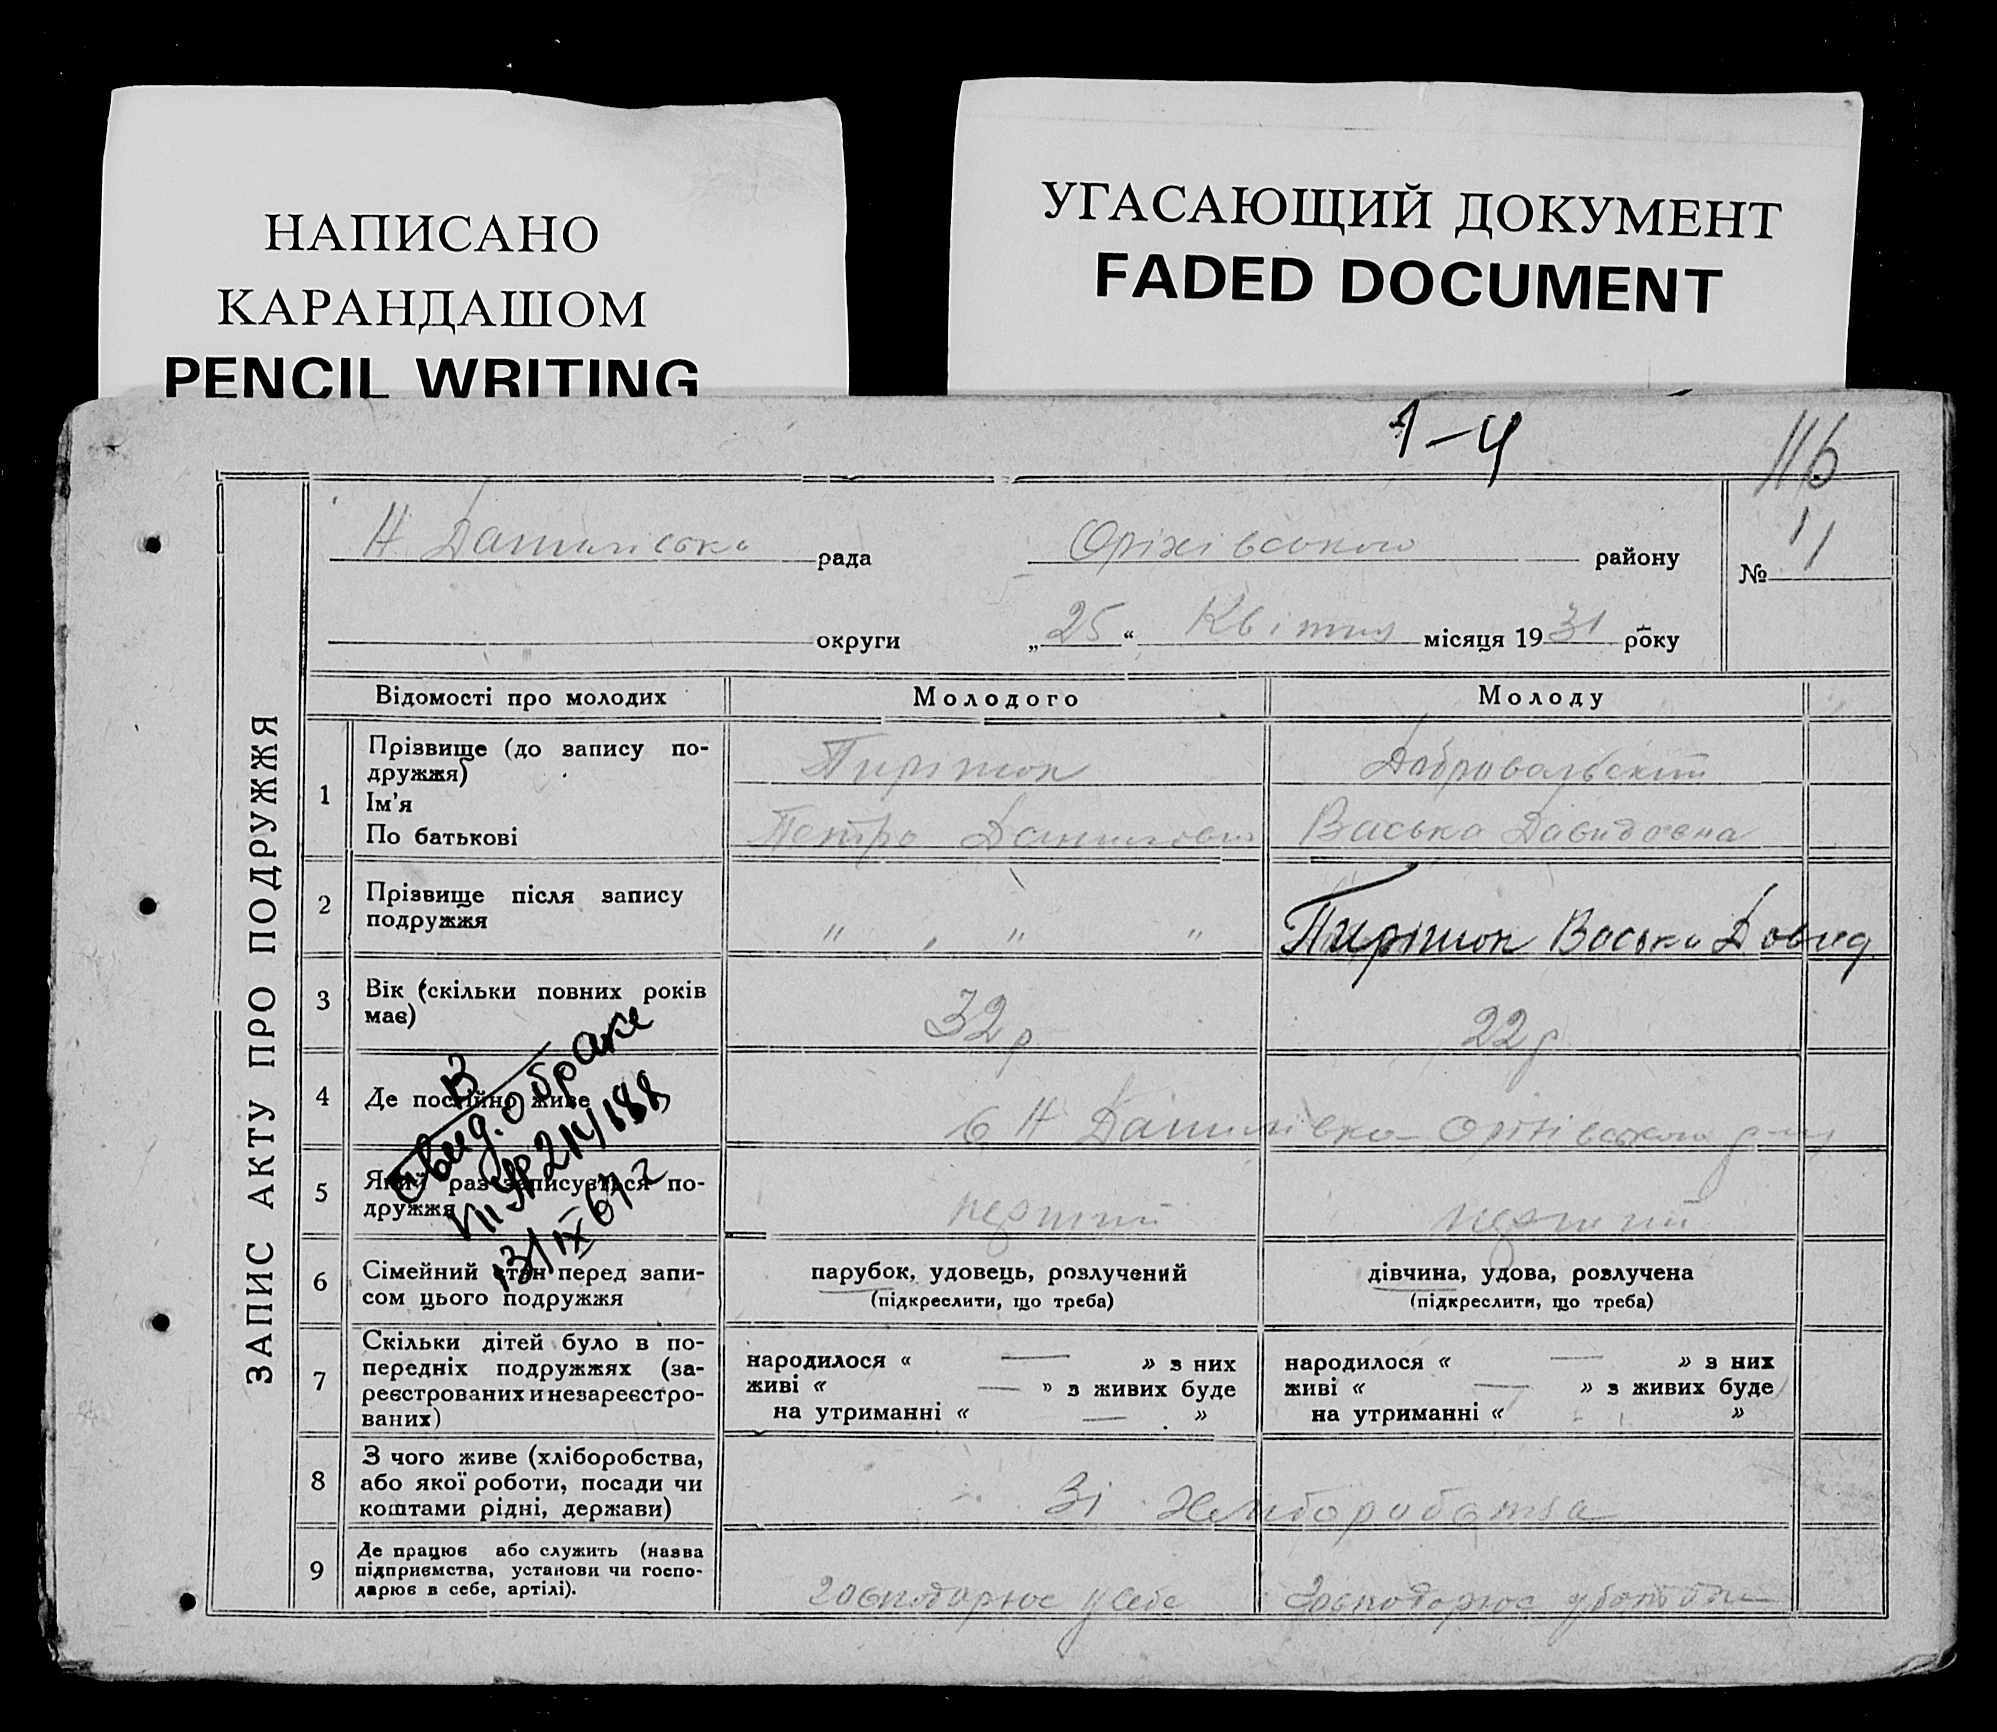 НАПИСАНО
КАРАНДАШОМ
PENCIL WRITING
УГАСАЮЩИЙ ДОКУМЕНТ
FADED DOCUMENT
1-4
116
ЗАПИС АКТУ ПРО ПОДРУЖЖЯ
Н рада Оріхівського району
№ 11
округи „25“ Квітня місяця 1931 року
Відомості про молодих Молодого Молоду
1 Прізвище (до запису по-
дружжя)
Ім'я
По батькові
Петро Васька Давидовна
2 Прізвище після запису
подружжя
" " " Васька Довид
3 Вік (скільки повних років
має)
32 р 22 р
4 Де постійно живе
с Н Оріхівського
5 Який раз записується по-
дружжя
перший перший
6 Сімейний стан перед запи-
сом цього подружжя
парубок, удовець, розлучений
(підкреслити, що треба)
дівчина, удова, розлучена
(підкреслити, що треба)
7 Скільки дітей було в по-
передніх подружжях (за-
реєстрованих и незареєстро-
ваних)
народилося « — » з них
живі « — » з живих буде
на утриманні « — »
народилося « — » з них
живі « — » з живих буде
на утриманні « - »
8 З чого живе (хліборобства,
або якої роботи, посади чи
коштами рідні, держави)
Зі
9 Де працює або служить (назва
підприємства, установи чи госпо-
дарює в себе, артілі).
господарює у себе господарює у
Свид. о браке
13/IX 67 г